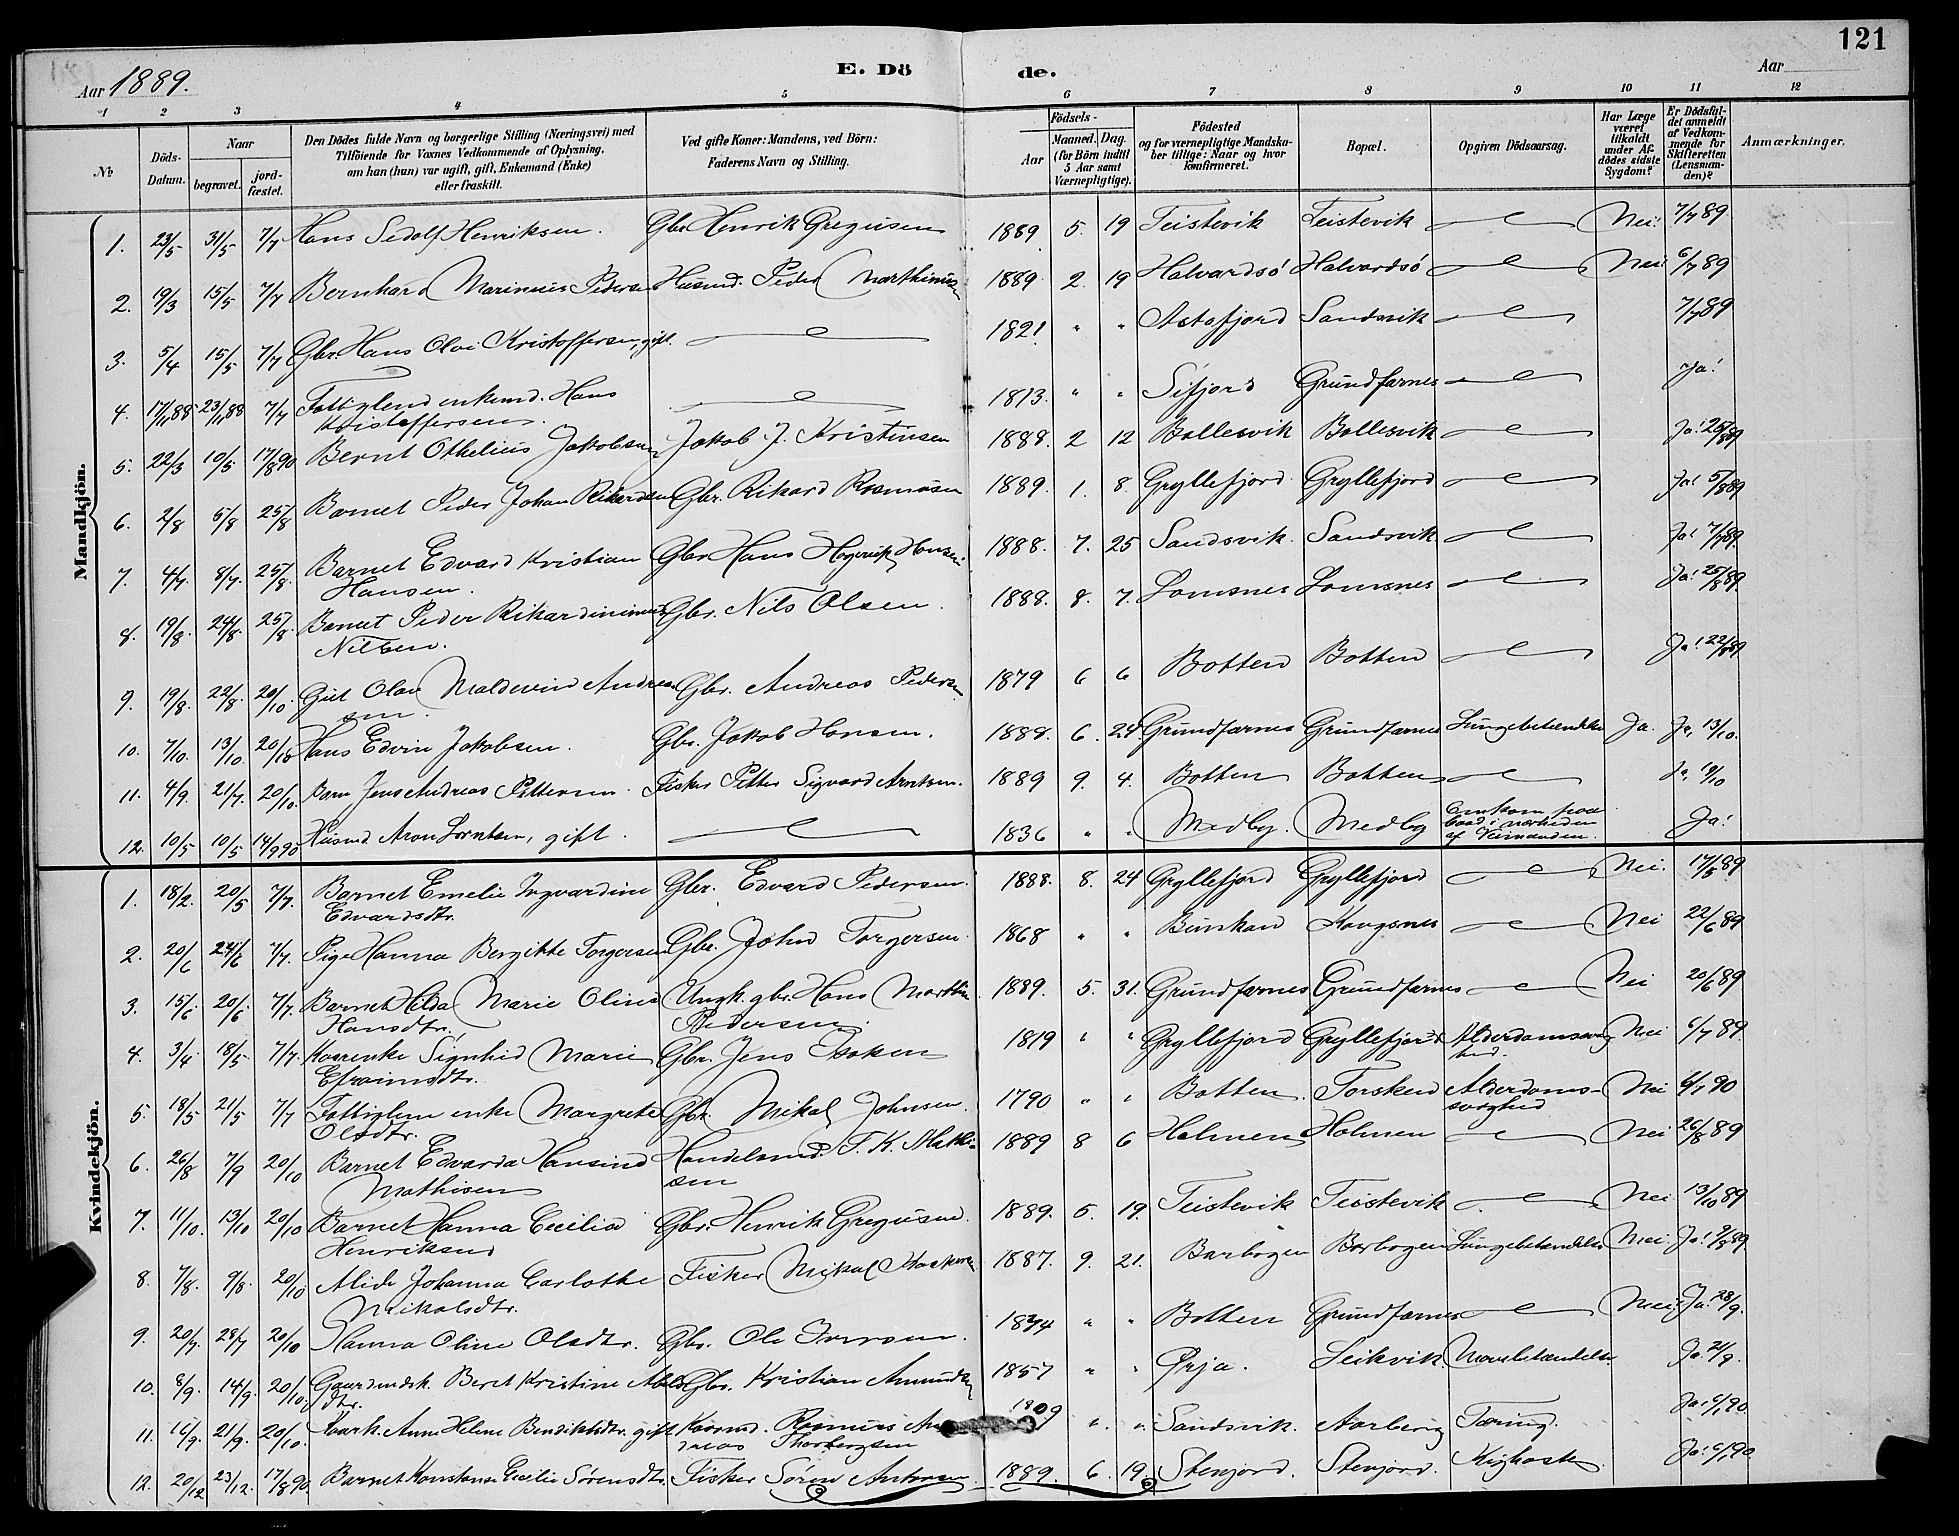 121
Aar 1889. E. Dö de. Aar
1 2 3 4 5 6 7 8 9 10 11 12
No Döds-Datum. Naar begravet. jordfæstet. Den Dödes fulde Navn og borgerlige Stilling (Næringsvei) med Tilföiende for Voxnes Vedkommende af Oplysning, om han (hun) var ugift, gift, Enkemand (Enke) eller fraskilt. Ved gifte Koner: Mandens, ved Börn: Faderens Navn og Stilling. Födsels- Aar Maaned. Dag. (for Börn indtil 5 Aar samt Værnepligtige). Födested og for værnepligtige Mandskaber tillige: Naar og hvor konfirmeret. Bopæl. Opgiven Dödsaarsag. Har Læge været tilkaldt under Afdödes sidste Sygdom? Er Dödsfaldet anmeldt af Vedkommende for Skifteretten (Lensmanden)? Anmærkninger.
Mandkjön.
1. 23/5 31/5 7/7 Hans Sedolf Henriksen. Gbr. Henrik Gregusen 1889 5. 19 Teistevik Teistevik Nei. 7/7 89
2. 19/3 15/5 7/7 Bernhard Marinius Pedersen Husmd. Peder Marthinusen 1889 2. 19 Halvardsö Halvardsö Nei 6/7 89
3. 5/4 15/5 7/7 Gbr. Hans Olai Kristoffersen, gift. 1821 " " Astafjord Sandsvik 7/7 89
4. 17/11 88 23/11 88 7/7 Fattiglem enkemd. Hans 1813. " " Sifjord Grundfarnes Ja!
Kristoffersen.
5. 22/3 10/5 17/8 90 Bernt Othelius Jakobsen Jakob J. Kristensen 1888. 2 12 Ballesvik Ballesvik Ja! 25/8 89
6. 2/8 5/8 25/8 Barnet Peder Johan Rikardsen Gbr. Rikard Rasmusen 1889. 1. 8. Gryllefjord Gryllefjord Ja! 5/8 89
7. 4/7 8/7. 25/8. Barnet Edvard Kristian Gbr. Hans Hansen 1888. 7. 25 Sandsvik. Sandsvik Ja! 7/7 89.
Hansen.
8. 19/8. 24/8. 25/8. Barnet Peder Rikardinius Gbr. Nils Olsen. 1888. 8. 7. Lomsnes Lomsnes Ja! 25/8 89.
Nilsen.
9. 19/8. 22/8. 20/10. Gut Olav Maldevind Andrea- Gbr. Andreas Pedersen 1879 6 6 Botten Botten Ja! 22/8 89
sen.
10. 7/10. 13/10 20/10 Hans Edvin Jakobsen. Gbr. Jakob Hansen. 1888. 6. 24. Grundfarnes Grundfarnes Lungebetændelse Ja. Ja, 13/10.
11. 4/9. 21/7. 20/10. Barn Jens Andreas Pettersen. Fisker Petter Sigvard Arntsen. 1889 9. 4. Botten Botten Ja 19/10
12. 10/5 10/5 14/9 90 Husmd Aron Lorntsen, gift. 1836 " " Medby. Medby Omkom paa baad i nærheden af Ja!
Kvindekjön.
1. 18/2. 20/5 7/7. Barnet Emelie Ingvardine Gbr. Edvard Pedersen. 1888. 8. 24 Gryllefjord Gryllefjord Nei. 17/5 89
Edvardsdtr.
2. 20/6 24/6 7/7. Pige Hanna Bergitte Torgersen Gbr. John Torgersen 1868 " " Bunkan Kaugsnes Nei 22/6 89
3. 15/6. 20/6 7/7. Barnet Hilda Marie Oline Ungk. gbr. Hans Martin 1889. 5. 31. Grundfarnes Grundfarnes Nei 20/6 89
Hansdtr. Pedersen.
4. 3/4 18/5 7/7. Kaarenke Signhid Marie Gbr. Jens Isaksen 1819 " " Gryllefjord Gryllefjord Alderdomssvaghed. Nei 6/7 89.
Efraimsdtr.
5. 18/5 21/5 7/7 Fattiglem enke Margrete Gbr. Mikal Johnsen. 1790 " " Botten. Torsken Alderdomssvaghed Nei 6/1 90
Olsdtr.
6. 26/8 7/9 20/10 Barnet Edvarda Hansine Handelsmd. F. K. Mathi- 1889 8 6 Holmen Holmen Nei 26/8 89
Mathisen sen
7. 11/10. 13/10 20/10 Barnet Hanna Cecilia Gbr. Henrik Gregusen. 1889. 5. 19. Teistevik Teistevik Nei 13/10 89
Henriksen
8. 7/8. 9/8. 20/10 Alide Johanna Carlotte Fisker Mikal 1887. 9. 21. Barbogen Barbogen Lungebetændelse Nei Ja! 9/8 89
Mikalsdtr.
9. 20/7. 28/7 20/10 Hanna Oline Olsdtr. Gbr. Ole Iversen. 1874 " " Botten Grundfarnes Nei! Ja! 28/9.
10. 8/9. 14/9. 20/10. Gaardmdsk. Beret Kristine Abels- Gbr. Kristian Amundsen 1857 " " Örja. Leikvik Ja. 21/9.
dtr.
11. 16/9. 21/9. 20/10. Kaark. Anne Helene Bendiktsdtr. gift Kaarmd. Rasmus An- 1809 " " Sandsvik. Aarberg Tæring. Ja! 6/1 90
dreas Thorbergsen
12. 20/12 23/12. 17/8 90. Barnet Konstanse Cecilie Sørensdtr. Fisker Søren Antonsen. 1889. 6. 19. Stenjord. Stenjord. Kighoste Ja! 6/1 90